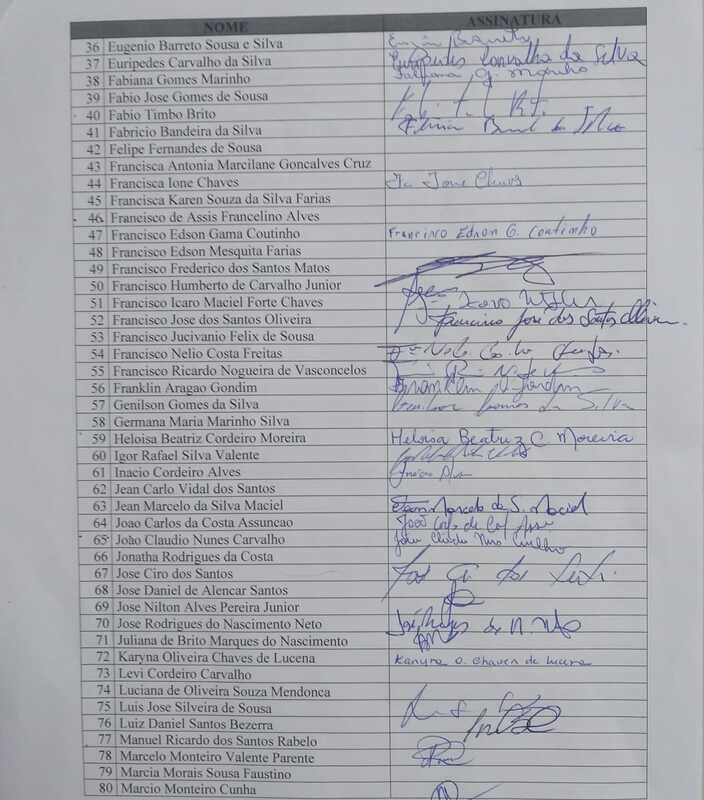 NOME ASSINATURA
36 Eugenio Barreto Sousa e Silva
37 Euripedes Carvalho da Silva Euripedes Carvalho da Silva
38 Fabiana Gomes Marinho Fabiana G. Marinho
39 Fabio Jose Gomes de Sousa
40 Fabio Timbo Brito
41 Fabricio Bandeira da Silva
42 Felipe Fernandes de Sousa
43 Francisca Antonia Marcilane Goncalves Cruz
44 Francisca Ione Chaves Fca Ione Chaves
45 Francisca Karen Souza da Silva Farias
46 Francisco de Assis Francelino Alves
47 Francisco Edson Gama Coutinho Francisco Edson G. Coutinho
48 Francisco Edson Mesquita Farias
49 Francisco Frederico dos Santos Matos
50 Francisco Humberto de Carvalho Junior
51 Francisco Icaro Maciel Forte Chaves
52 Francisco Jose dos Santos Oliveira Francisco José dos Santos Oliveira
53 Francisco Jucivanio Felix de Sousa
54 Francisco Nelio Costa Freitas
55 Francisco Ricardo Nogueira de Vasconcelos
56 Franklin Aragao Gondim
57 Genilson Gomes da Silva Genilson Gomes da Silva
58 Germana Maria Marinho Silva
59 Heloisa Beatriz Cordeiro Moreira Heloisa Beatriz C. Moreira
60 Igor Rafael Silva Valente
61 Inacio Cordeiro Alves
62 Jean Carlo Vidal dos Santos
63 Jean Marcelo da Silva Maciel Jean Marcelo da S. Maciel
64 Joao Carlos da Costa Assuncao
65 João Claudio Nunes Carvalho
66 Jonatha Rodrigues da Costa
67 Jose Ciro dos Santos
68 Jose Daniel de Alencar Santos
69 Jose Nilton Alves Pereira Junior
70 Jose Rodrigues do Nascimento Neto
71 Juliana de Brito Marques do Nascimento
72 Karyna Oliveira Chaves de Lucena Karyna O. Chaves de Lucena
73 Levi Cordeiro Carvalho
74 Luciana de Oliveira Souza Mendonca
75 Luis Jose Silveira de Sousa
76 Luiz Daniel Santos Bezerra
77 Manuel Ricardo dos Santos Rabelo
78 Marcelo Monteiro Valente Parente
79 Marcia Morais Sousa Faustino
80 Marcio Monteiro Cunha